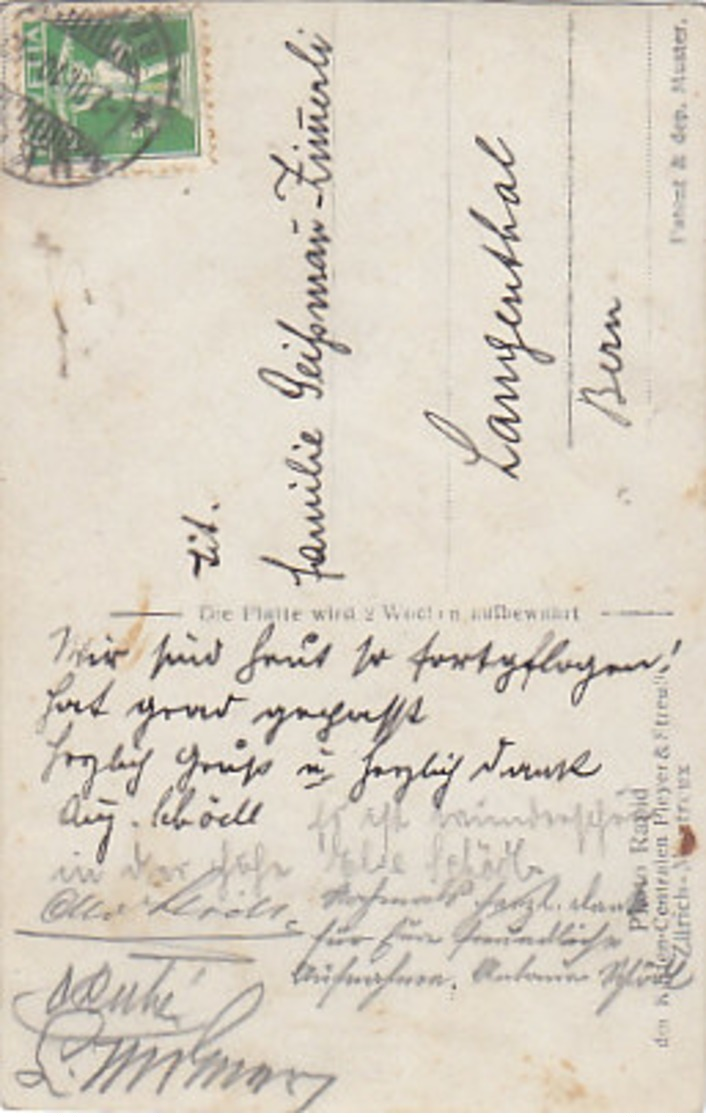 HELVETIA
Tit.
Familie Geißmañ-Zimerli
Langenthal
Bern
Patent & dep. Muster.
Die Platte wird 2 Wochen aufbewahrt
Wir sind heut so fortgeflogen!
hat grad gepasst
Herzlich Gruß u. herzlich Dank
Aug. Schödl
Es ist wunderschön
in der Höhe Schödl.
Nochmals herzl. Dank
für Eure freundliche
Aufnahme. Antonie Schödl
Photo Rapid
den Karten-Centralen Pleyer & Streuli
Zürich-Montreux